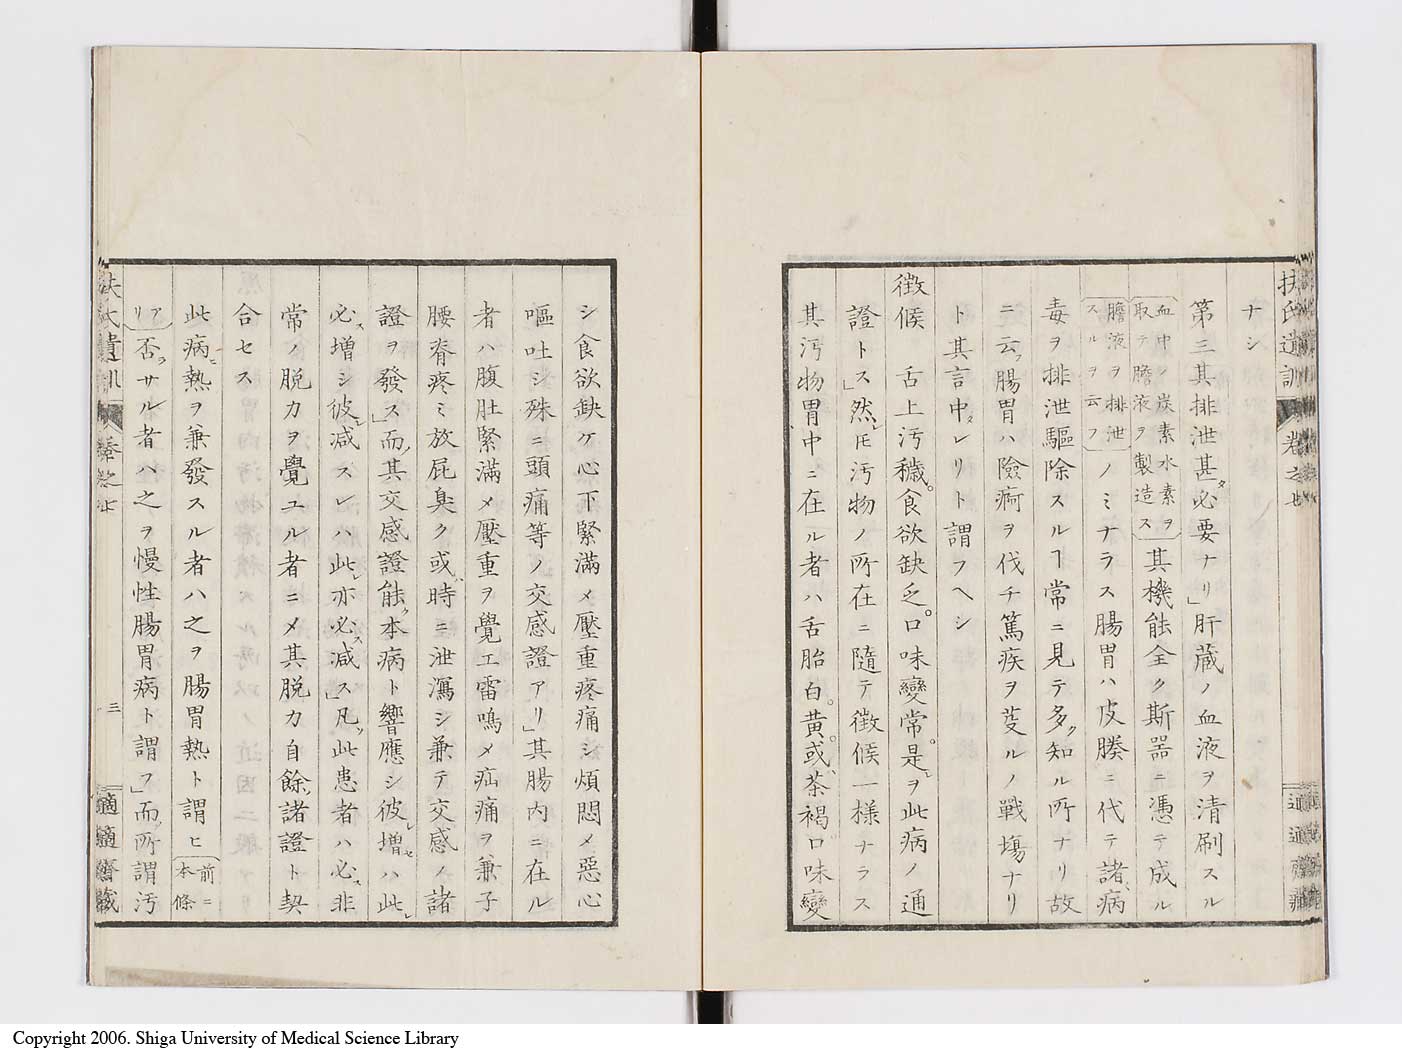 扶氏遺訓 卷之七
適適齋藏
ナシ
第三其排泄甚タ必要ナリ」肝蔵ノ血液ヲ清刷スル
血中ノ炭素水素ヲ
取テ膽液ヲ製造ス
其機能全ク斯噐ニ憑テ成ル
膽液ヲ排泄
スルヲ云フ
ノミナラス腸胃ハ皮膝ニ代テ諸ノ病
毒ヲ排泄驅除スルヿ常ニ見テ多ク知ル所ナリ故
ニ云フ腸胃ハ險痾ヲ伐チ篤疾ヲ芟ルノ戰塲ナリ
ト其言中レリト謂フヘシ
徴候 舌上汚穢。食欲缺乏。口味變常。是レヲ此病ノ通
證トス」然レ𪜈汚物ノ所在ニ隨テ徴候一樣ナラス
其汚物胃中ニ在ル者ハ舌胎白。黄。或ハ茶褐口味變
シ食欲缺ケ心下緊滿メ壓重疼痛シ煩悶メ惡心
嘔吐シ殊ニ頭痛等ノ交感證アリ」其腸内ニ在ル
者ハ腹肚緊滿メ壓重ヲ覺エ雷鳴メ疝痛ヲ兼子
腰脊疼ミ放屁臭ク或ハ時ニ泄瀉シ兼テ交感ノ諸
證ヲ發ス」而メ其交感證能ク本病ト響應シ彼レ増セハ此レ
必ス増シ彼レ減スレハ此レ亦必ス減ス」凡ソ此患者ハ必ス非
常ノ脱力ヲ覺ユル者ニメ其脱力自餘ノ諸證ト契
合セス
此病ニ熱ヲ兼發スル者ハ之ヲ腸胃熱ト謂ヒ
前ニ
本條
アリ
否ラサル者ハ之ヲ慢性腸胃病ト謂フ」而メ所謂汚
扶氏遺訓 卷之七
三
適適齋藏
Copyright 2006. Shiga University of Medical Science Library